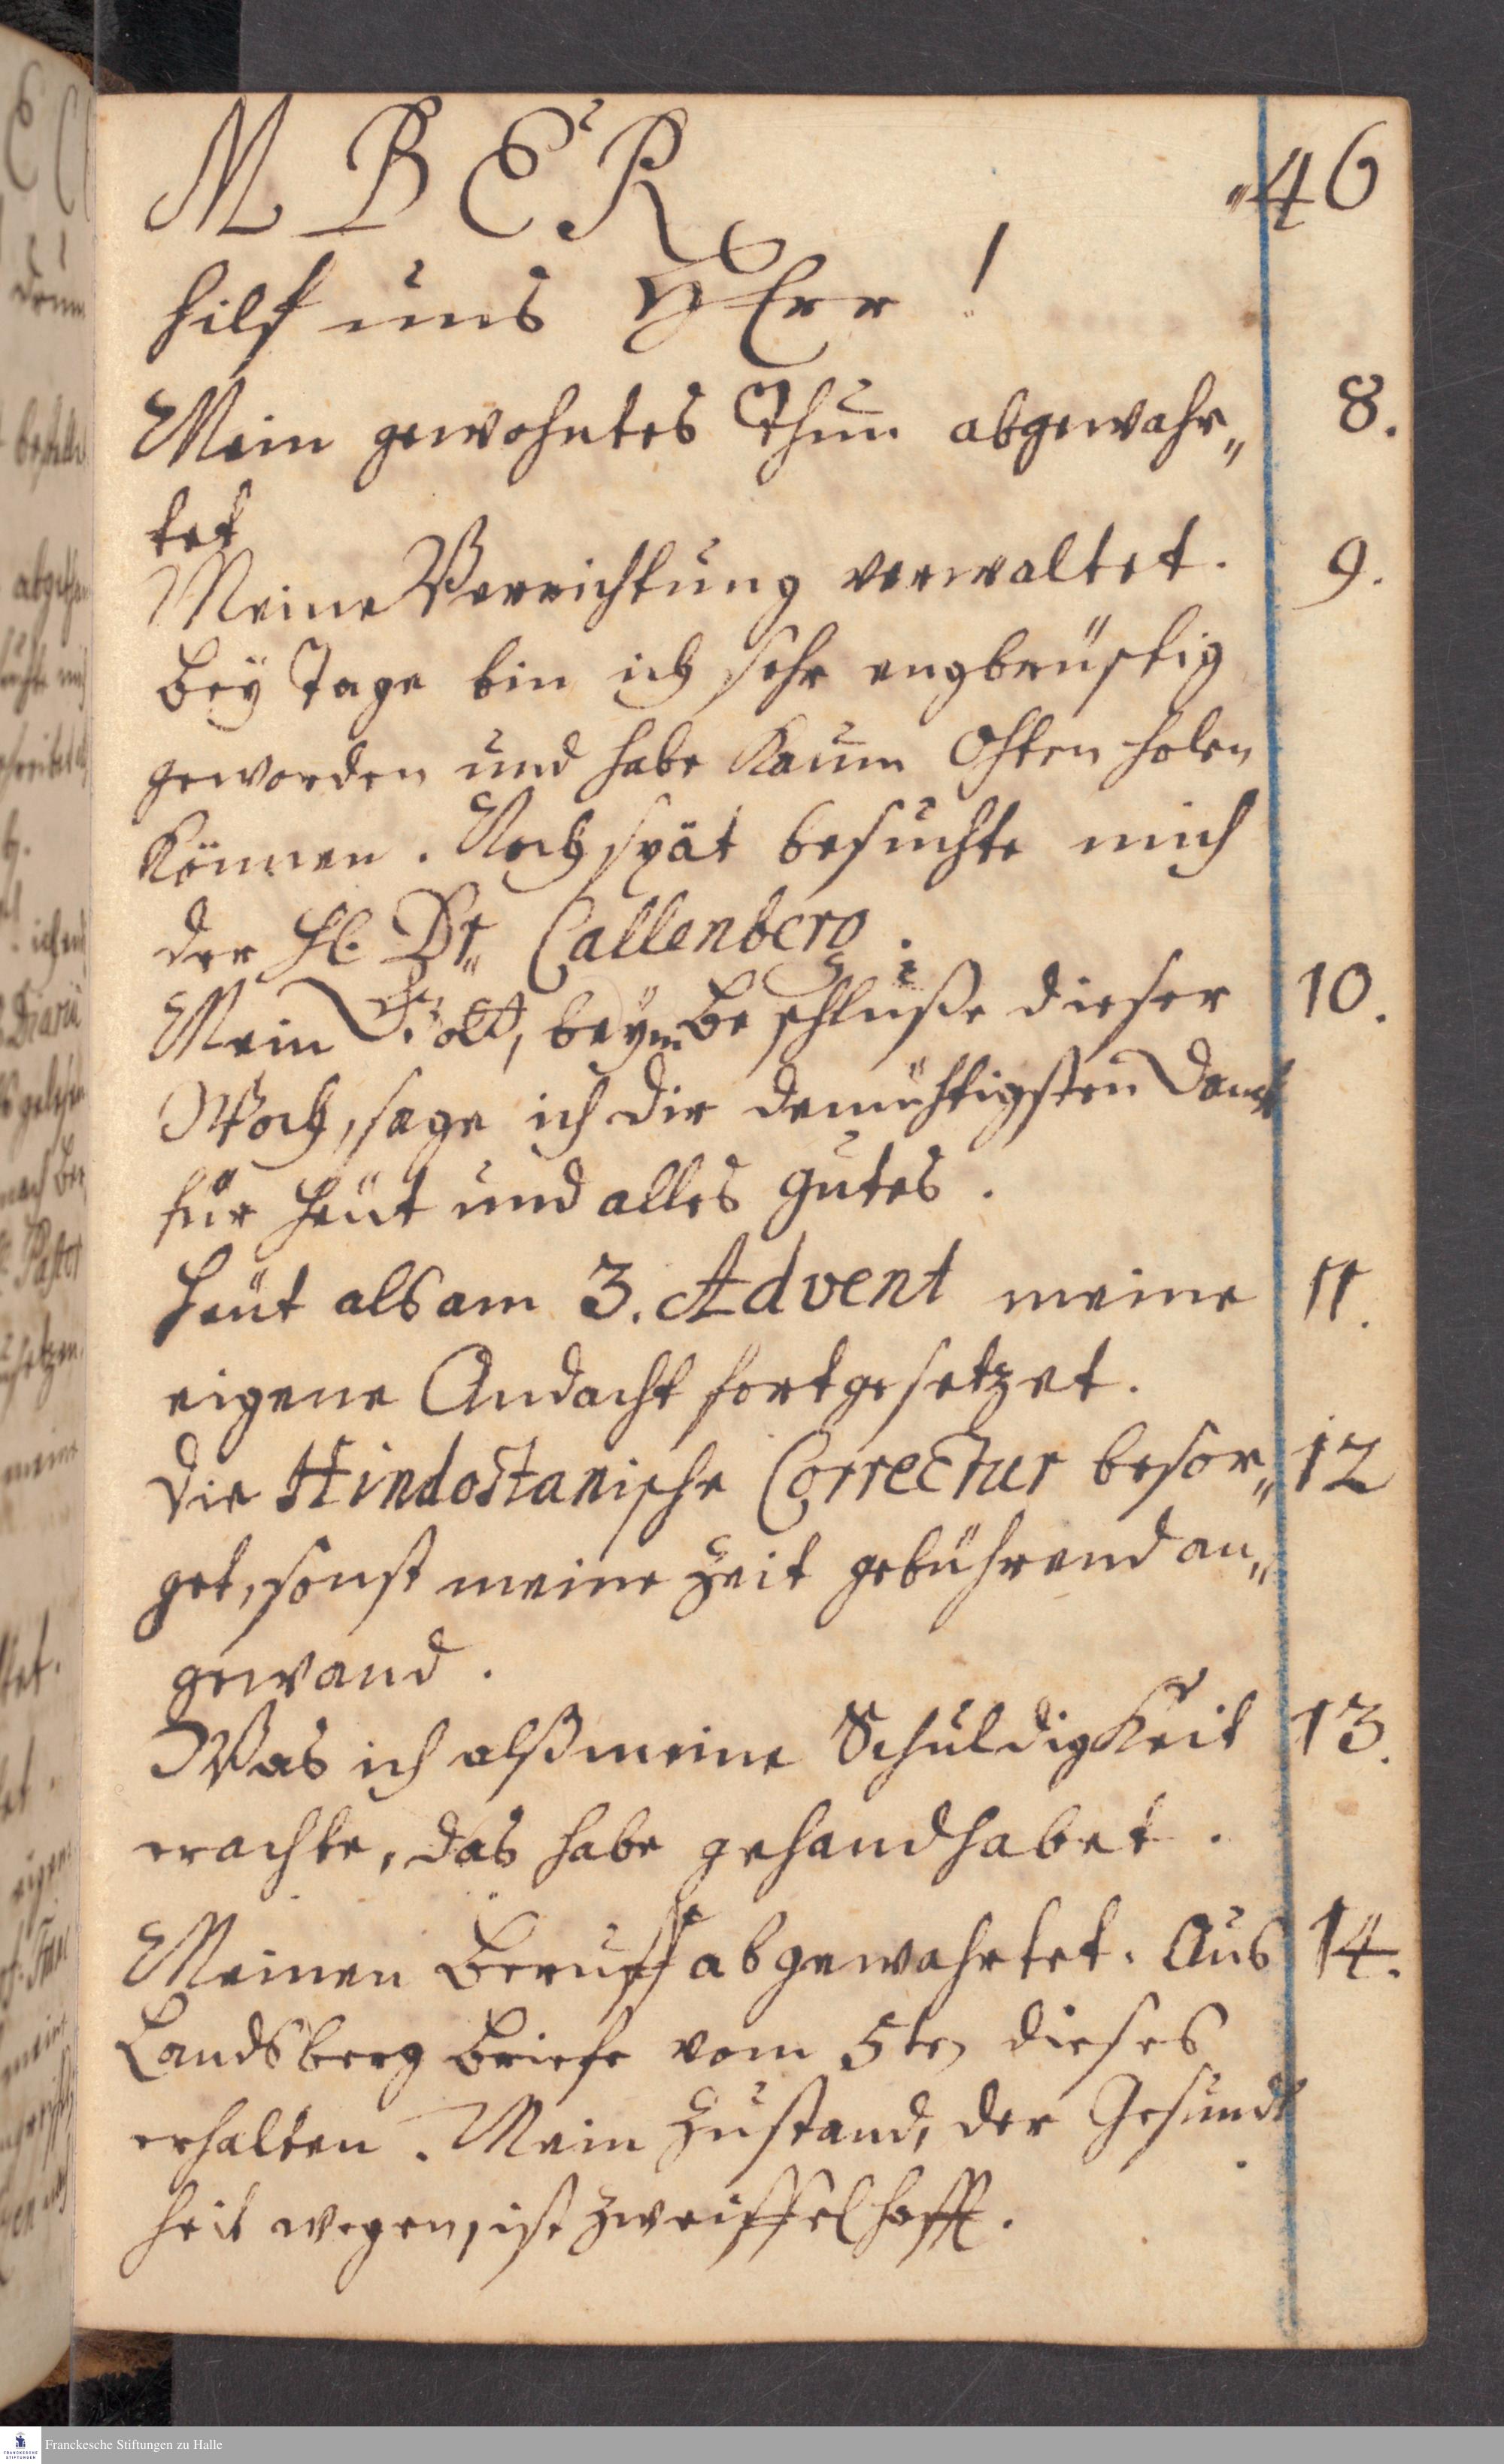 MBER
46
hilf uns HErr!
Mein gewohntes Thun abgewahr„ 8.
tet
Meine Verrichtung verwaltet. 9.
Bey Tage bin ich sehr engbrüstig
geworden und habe Kaum Othen holen
Können. Noch spät besuchte mich
der H. Dr. Callenberg.
Mein Gott, beym Beschluße dieser 10.
Woch, sage ich dir demühtigsten Danck
für Heüt und alles gutes.
Heüt als am 3. Advent meine 11.
eigene Andacht fortgesetzet.
Die Hindostanische Correctur besor„ 12
get, sonst meine Zeit gebührend an„
gewand.
Was ich alß meine Schuldigkeit 13.
erachte, das habe gehandhabet.
Meinen Beruff abgewahrtet. Aus 14.
Landsberg Briefe vom 5ten dieses
erhalten. Mein Zustand, der Gesund
heit wegen, ist zweiffelhafft.
Franckesche Stiftungen zu Halle